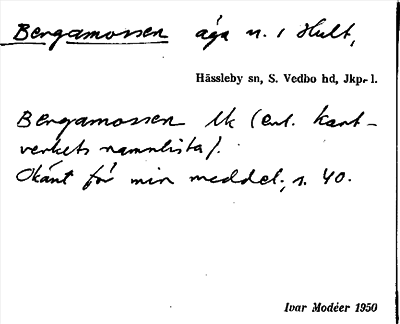 Bergamossen äga n. 1 Hult,
Hässleby sn, S. Vedbo hd, Jkp. l.
Bergamossen lk (enl. kart-
verkets namnlista).
Okänt för min meddel., s. 40.
Ivar Modéer 1950